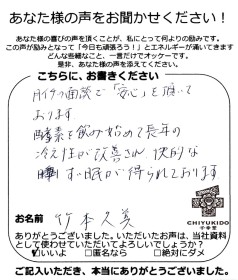 あなた様の声をお聞かせください！
あなた様の喜びの声を頂くことが、私にとって何よりの励みです。
この声が励みとなって「今日も頑張ろう！」とエネルギーが湧いてきます
どんな些細なこと、一言だけでオッケーです。
是非、あなた様の声を添えてください。
こちらに、お書きください
面談で「安心」を頂いて
おります。
酵素を飲み始めて長年の
冷え性が改善され、快的な
睡眠が得られております
お名前
竹本久美
CHIYUKIDO
千幸堂
ありがとうございました。いただいたお声は、当社資料
として使わせていただいてよろしいでしょうか？
☑いいよ □匿名なら □絶対にダメ
ご記入いただき、本当にありがとうございました。